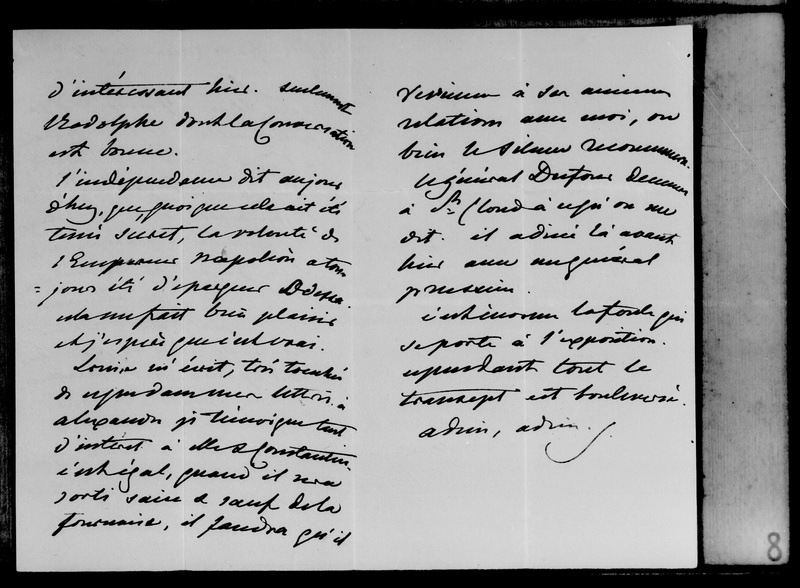 d'intéressant hier. seulement
Rodolphe dont la conversation
est bonne.
l'indépendance dit aujour
d'huy, que, quoique cela ait été
tenu secret, la volonté de
l'Empereur Napoléon a tou
= jours été d'épargner Odessa.
cela me fait bien plaisir
et j'espère que c'est vrai.
Louise m'écrit, très touchée
de ce que dans mes lettres à
alexandre je témoigne tant
d'intérêt à elle & Constantin.
c'est égal, quand il sera
sorti sain & sauf de la
fournaise, il faudra qu'il
revienne à ses anciennes
relations avec moi, ou
bien le silence recommence.
le général Dufour demeure
à St Cloud à ce qu'on me
dit. il a diné là avant
hier avec un général
prussien.
c'est énorme la foule qui
se porte à l'exposition.
cependant tout le
transept est bouleversé.
adieu, adieu.
8